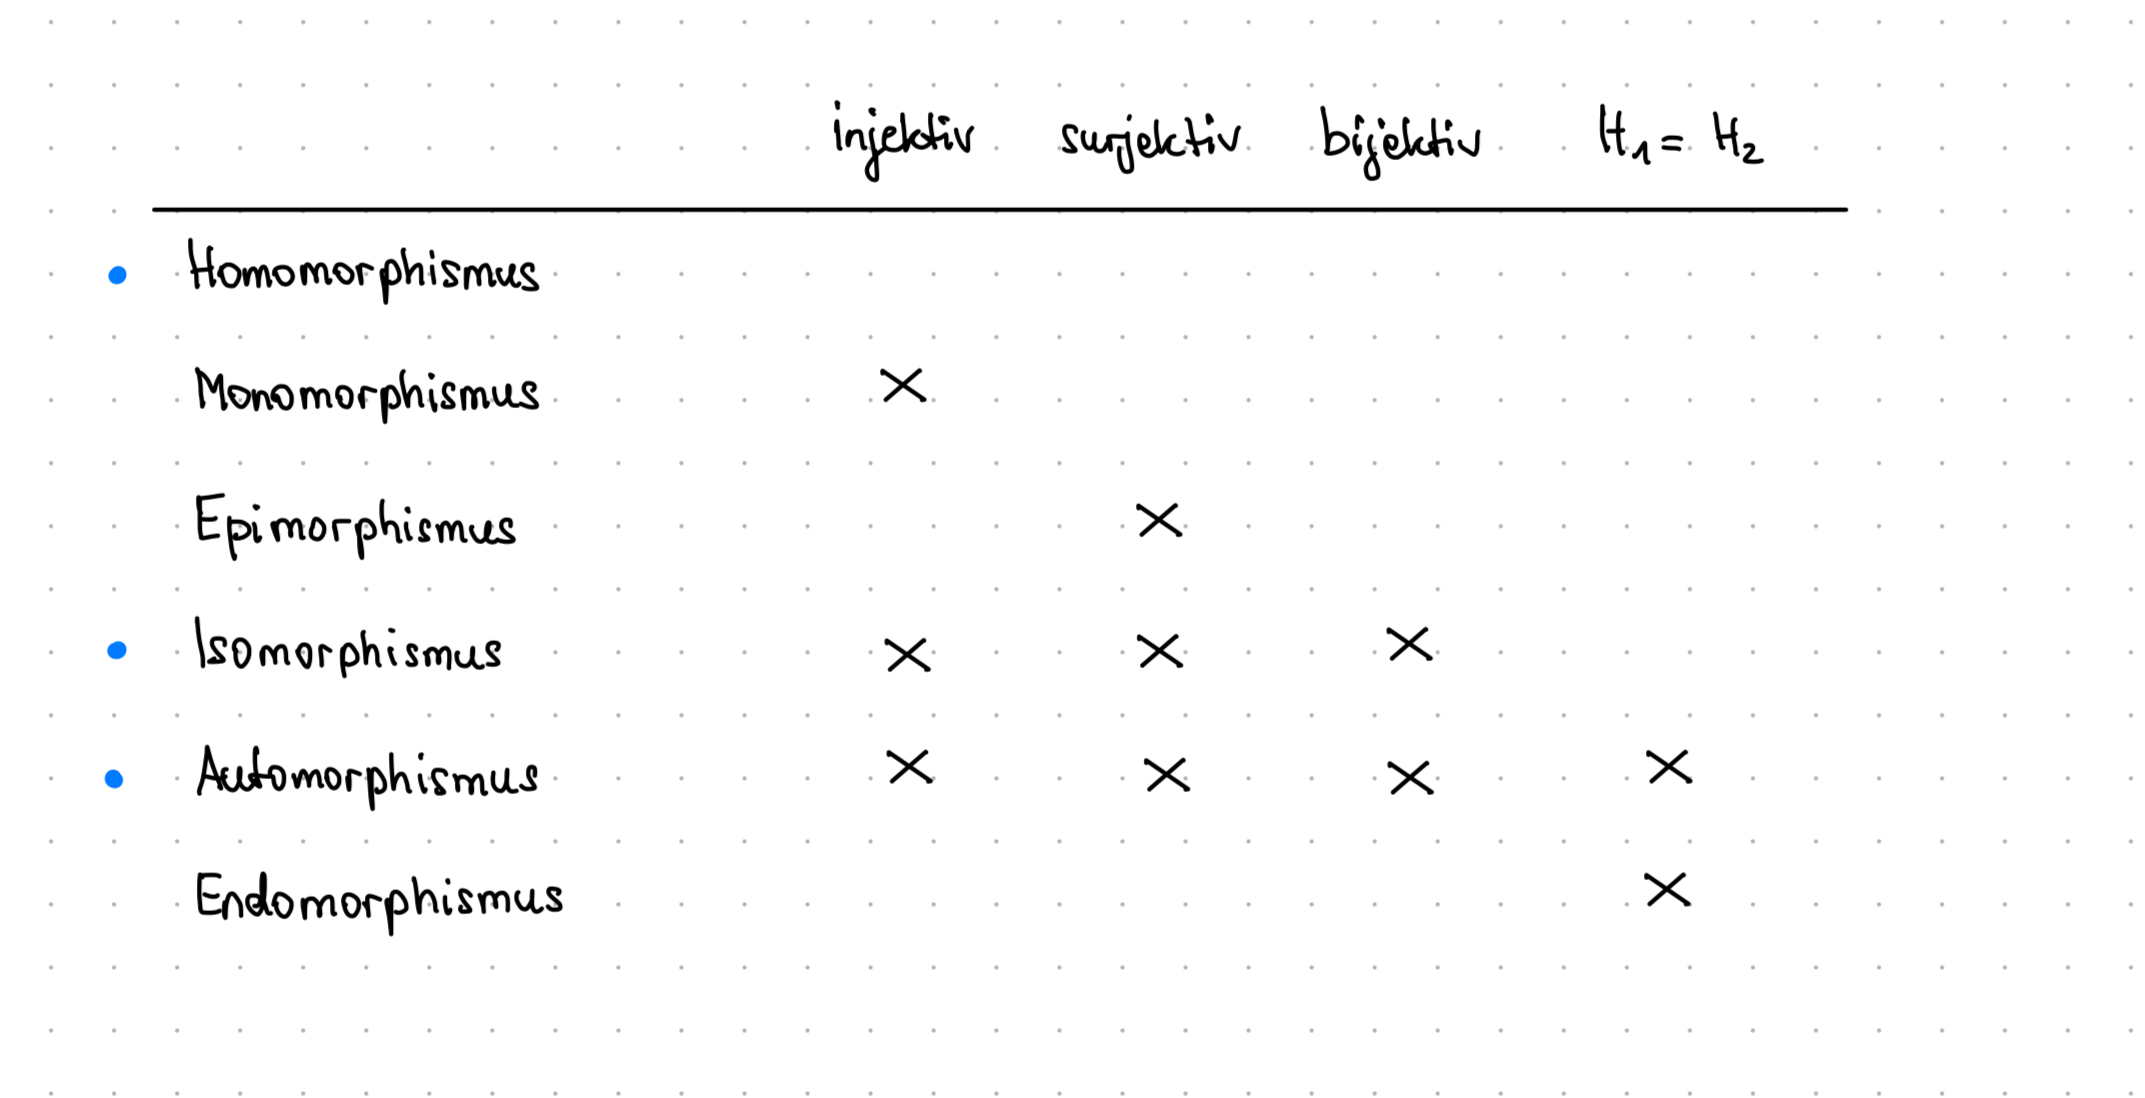 injektiv surjektiv bijektiv H₁ = H₂
• Homomorphismus
Monomorphismus ×
Epimorphismus ×
• Isomorphismus × × ×
• Automorphismus × × × ×
Endomorphismus ×